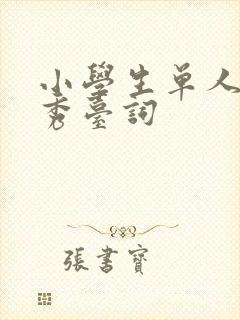 小學生单人
秀臺詞
張書寶